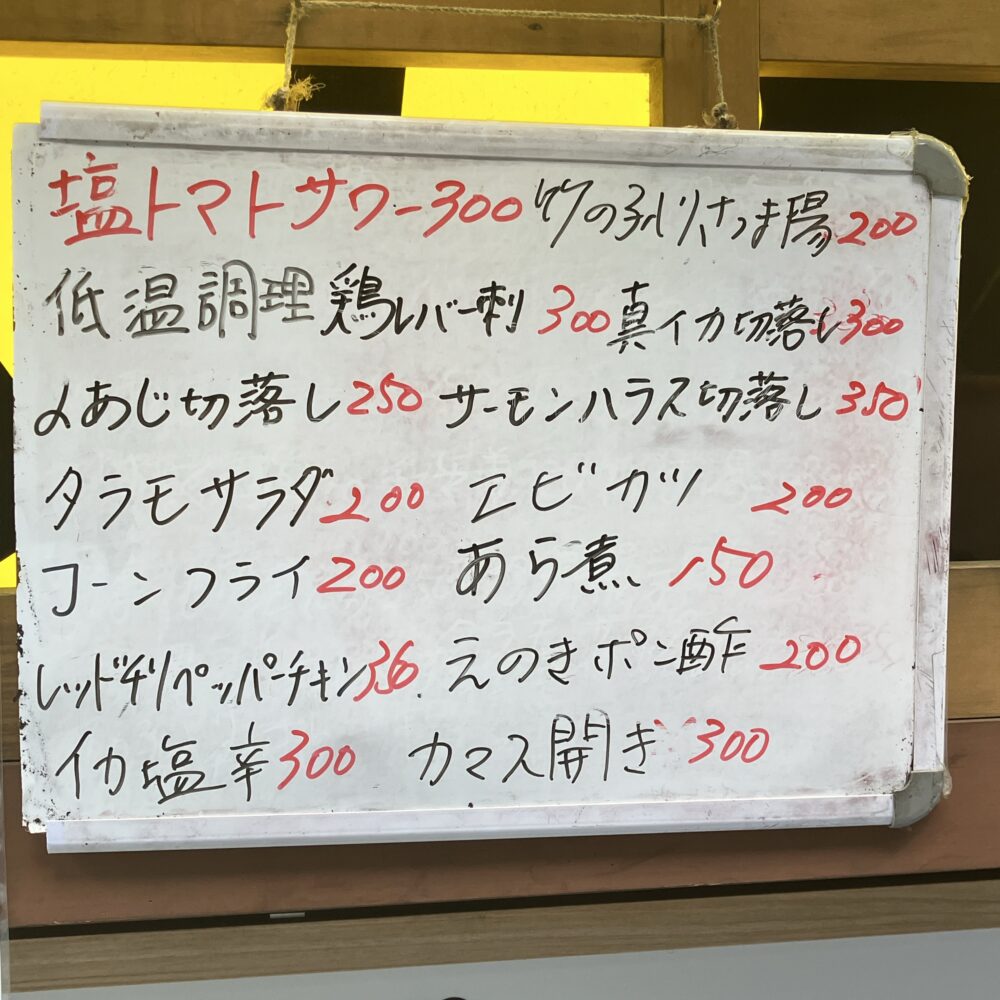 塩トマトサワー300 竹の子入りさつま揚200
低温調理鶏レバー刺 300 真イカ切落し300
〆あじ切落し250 サーモンハラス切落し350
タラモサラダ200 エビカツ 200
コーンフライ200 あら煮 150
レッドチリペッパーチキン えのきポン酢200
イカ塩辛300 カマス開き300